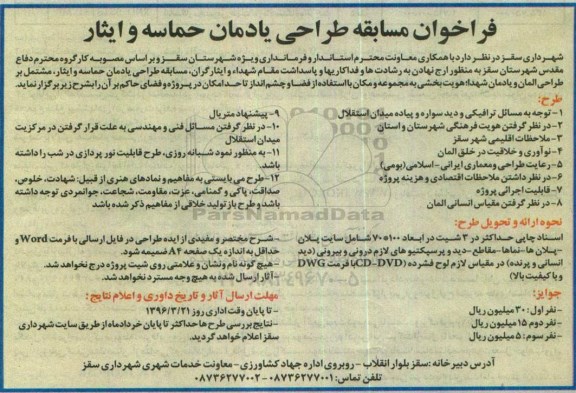 فراخوان مسابقه طراحی یادمان حماسه و ایثار
شهرداری سقز در نظر دارد با همکاری معاونت محترم استاندار و فرمانداری ویژه شهرستان سقز و بر اساس مصوبه کارگروه محترم دفاع
مقدس شهرستان سقز به منظور ارج نهادن به رشادت ها و فداکاریها و پاسداشت مقام شهداء و ایثارگران، مسابقه طراحی یادمان حماسه و ایثار، مشتمل بر
طراحی المان و یادمان شهدا؛ هویت بخشی به مجموعه و مکان با استفاده از فضا و چشم انداز تا حد امکان در پروژه و فضای حاکم بر آن را بشرح زیر برگزار نماید.
طرح:
۱- توجه به مسائل ترافیکی و دید سواره و پیاده میدان استقلال
۲- در نظر گرفتن هویت فرهنگی شهرستان و استان
۳- ملاحظات اقلیمی شهر سقز
۴- نوآوری و خلاقیت در خلق المان
۵- رعایت طراحی و معماری ایرانی-اسلامی(بومی)
۶- در نظر داشتن ملاحظات اقتصادی و هزینه پروژه
۷- قابلیت اجرائی پروژه
۸- در نظر گرفتن مقیاس انسانی المان
۹- پیشنهاد متریال
۱۰- در نظر گرفتن مسائل فنی و مهندسی به علت قرار گرفتن در مرکزیت
میدان استقلال
۱۱- به منظور نمود شبانه روزی، طرح قابلیت نور پردازی در شب را داشته
باشد.
۱۲- طرح می بایستی به مفاهیم و نمادهای هنری از قبیل: شهادت، خلوص،
صداقت، پاکی و گمنامی، عزت، مقاومت، شجاعت، جوانمردی توجه داشته
باشد و طرح باز تولید خلاقی از مفاهیم ذکر شده باشد
نحوه ارائه و تحویل طرح:
اسناد چاپی حداکثر در ۳ شیت در ابعاد ۱۰۰*۷۰ شامل سایت پلان
-پلان ها-نماها-مقاطع-دید و پرسپکتیو های لازم درونی و بیرونی (دید
انسانی و پرنده) در مقیاس لازم لوح فشرده (CD-DVD با فرمت DWG
و با کیفیت بالا)
- شرح مختصر و مفیدی از ایده طراحی در فایل ارسالی با فرمت Word و
حداقل به اندازه یک صفحه A4 ضمیمه شود.
- هیچ گونه نام و نشان و علامتی روی شیت پروژه درج نخواهد شد.
- آثار ارسال شده به هیچ وجه مسترد نخواهد شد.
جوایز:
- نفر اول: ۳۰ میلیون ریال
- نفر دوم ۱۵ میلیون ریال
- نفر سوم: ۵ میلیون ریال
مهلت ارسال آثار و تاریخ داوری و اعلام نتایج:
- تا پایان وقت اداری روز ۱۳۹۶/۳/۲۱
- نتایج بررسی طرح ها حداکثر تا پایان خردادماه از طریق سایت شهرداری
سقز اعلام خواهد گردید.
آدرس دبیرخانه: سقز بلوار انقلاب - روبروی اداره جهاد کشاورزی - معاونت خدمات شهری شهرداری سقز
تلفن تماس: ۰۸۷۳۶۲۷۷۰۰۱ - ۰۸۷۳۶۲۷۷۰۰۲
ParsNamadData